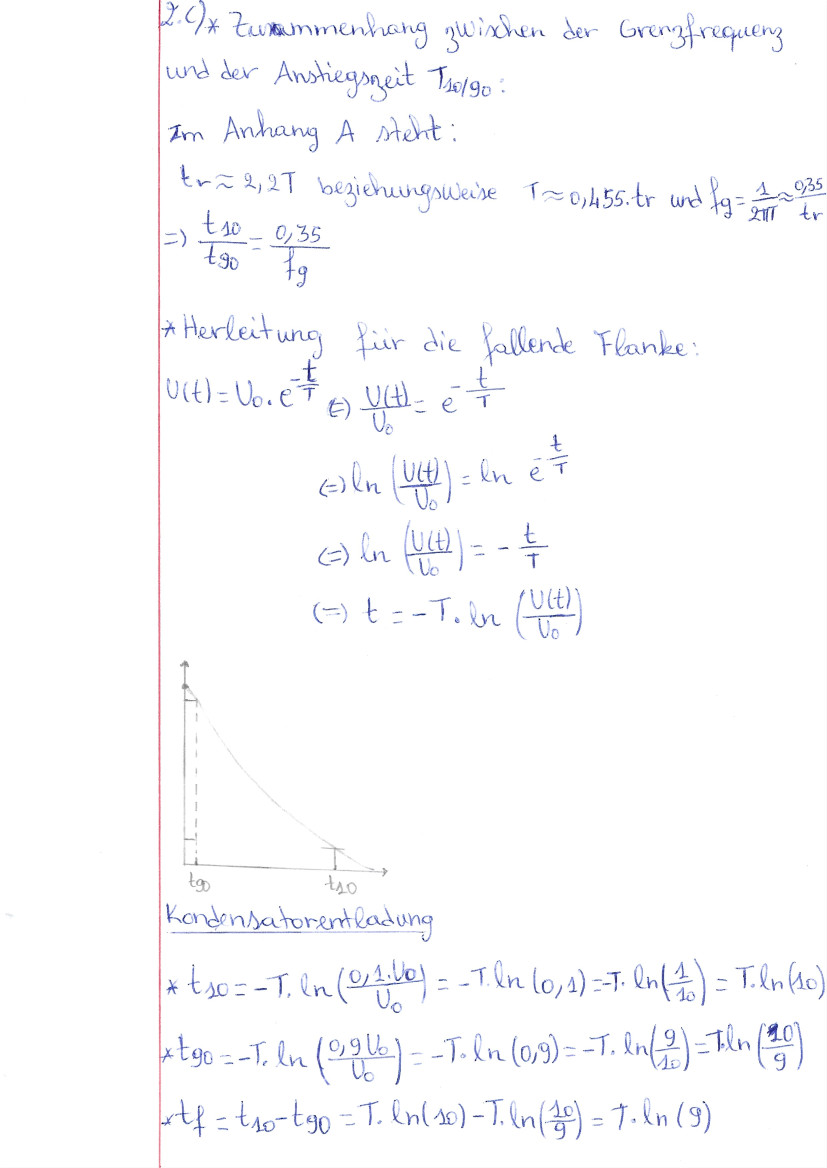 2.c) * Zusammenhang zwischen der Grenzfrequenz
und der Anstiegszeit T10/90 :
Im Anhang A steht :
tr ≈ 2,2T beziehungsweise T ≈ 0,455.tr und fg = 1/2πT ≈ 0,35/tr
=) t10/t90 = 0,35/fg
* Herleitung für die fallende Flanke:
U(t) = U0 . e^-t/T (=) U(t)/U0 = e^-t/T
(=) ln (U(t)/U0) = ln e^-t/T
(=) ln (U(t)/U0) = - t/T
(=) t = -T. ln (U(t)/U0)
t90 t10
Kondensatorentladung
* t10 = -T. ln(0,1.U0/U0) = -T.ln(0,1) = -T. ln(1/10) = T.ln(10)
* t90 = -T. ln (0,9U0/U0) = -T. ln(0,9) = -T. ln(9/10) = T.ln(10/9)
* tf = t10 - t90 = T. ln(10) - T. ln(10/9) = T. ln(9)